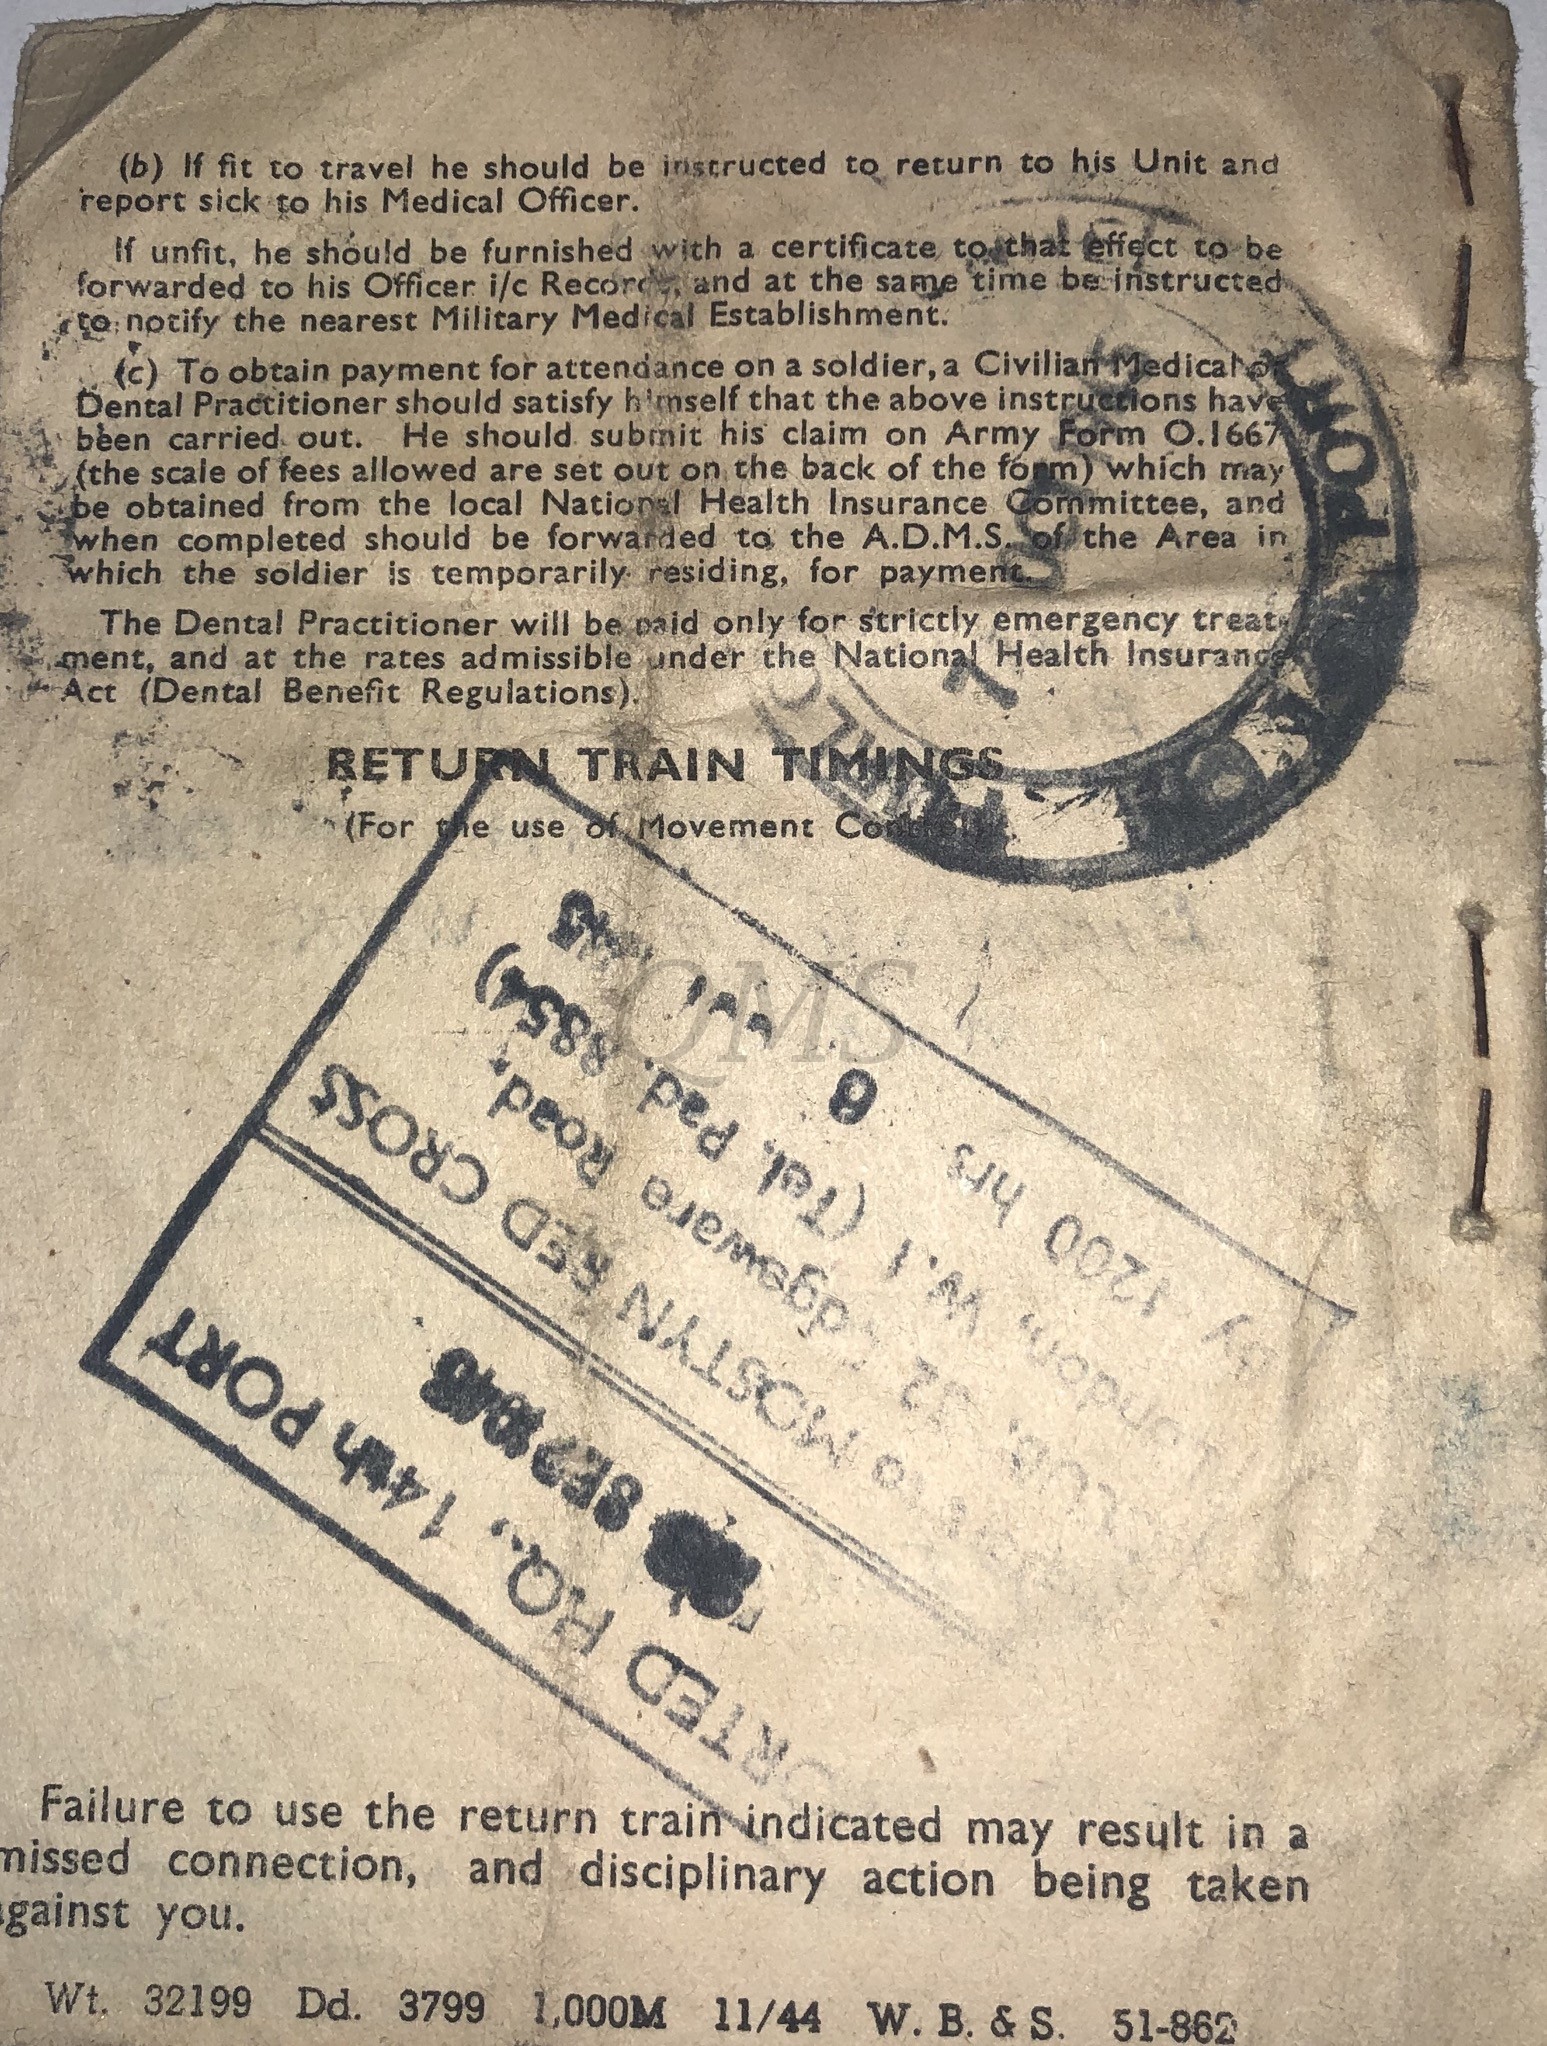 (b) If fit to travel he should be instructed to return to his Unit and
report sick to his Medical Officer.
If unfit, he should be furnished with a certificate to that effect to be
forwarded to his Officer i/c Records, and at the same time be instructed
to notify the nearest Military Medical Establishment.
(c) To obtain payment for attendance on a soldier, a Civilian Medical or
Dental Practitioner should satisfy himself that the above instructions have
been carried out. He should submit his claim on Army Form O.1667
(the scale of fees allowed are set out on the back of the form) which may
be obtained from the local National Health Insurance Committee, and
when completed should be forwarded to the A.D.M.S. of the Area in
which the soldier is temporarily residing, for payment.
The Dental Practitioner will be paid only for strictly emergency treat-
ment, and at the rates admissible under the National Health Insurance
Act (Dental Benefit Regulations).
RETURN TRAIN TIMINGS
(For the use of Movement Control)
PORT
QMS
HQ., 14th PORT
SEP 1945
to MOSTYN RED CROSS
32 Edgeware Road,
W.1 (Tel. Pad. 8854)
By 1200 hrs
Failure to use the return train indicated may result in a
missed connection, and disciplinary action being taken
against you.
Wt. 32199 Dd. 3799 1,000M 11/44 W. B. & S. 51-862